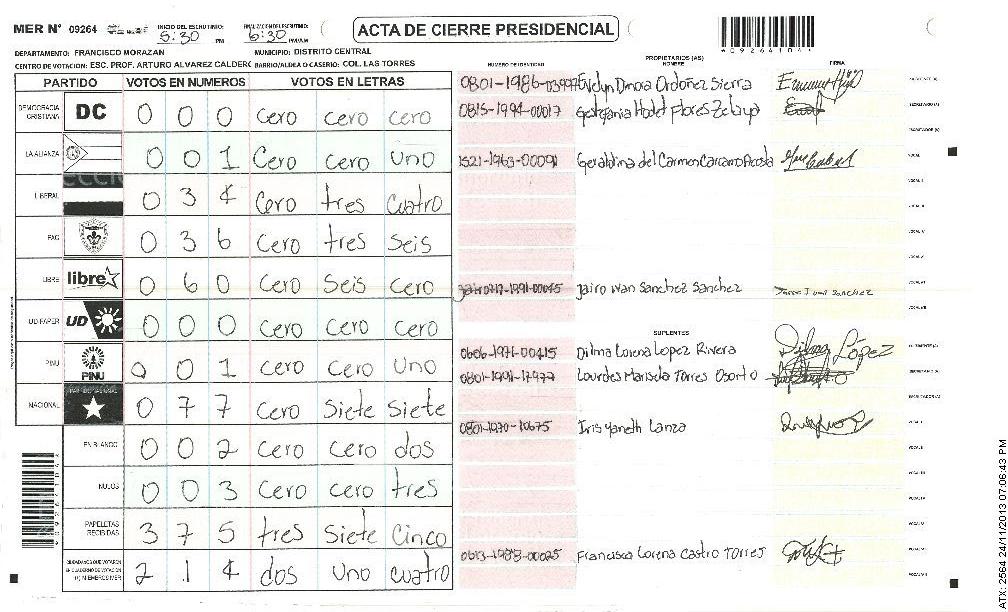 MER Nº 09264 INICIO DEL ESCRUTINIO: 5:30 PM FINALIZACION DEL ESCRUTINIO: 6:30 PM/AM
ACTA DE CIERRE PRESIDENCIAL
DEPARTAMENTO: FRANCISCO MORAZAN MUNICIPIO: DISTRITO CENTRAL
CENTRO DE VOTACION: ESC. PROF. ARTURO ALVAREZ CALDERO BARRIO/ALDEA O CASERIO: COL. LAS TORRES
PARTIDO VOTOS EN NUMEROS VOTOS EN LETRAS
DEMOCRACIA CRISTIANA DC 0 0 0 Cero cero cero
LA ALIANZA 0 0 1 Cero cero uno
LIBERAL 0 3 4 Cero tres cuatro
PAC 0 3 6 Cero tres Seis
LIBRE libre 0 6 0 Cero Seis Cero
UD-FAPER UD 0 0 0 Cero Cero cero
PINU PINU 0 0 1 Cero Cero Uno
NACIONAL 0 7 7 Cero Siete Siete
EN BLANCO 0 0 2 Cero Cero dos
NULOS 0 0 3 Cero Cero tres
PAPELETAS RECIBIDAS 3 7 5 tres Siete Cinco
CIUDADANOS QUE VOTARON EN CUADERNO DE VOTACION (+) MIEMBROS MER 2 1 4 dos Uno cuatro
PROPIETARIOS (AS)
NUMERO DE IDENTIDAD NOMBRE FIRMA
Evelyn Dinora Ordoñez Sierra
0815-1994-00017 Flores Zelaya
1521-1963-00091 Geraldina del Carmen Carcamo Acosta
Jairo Ivan Sanchez Sanchez
SUPLENTES
0606-1971-00415 Dilma Lorena Lopez Rivera Dilma López
Lourdes Marisela Torres Osorto
0801-1970-10675 Iris Yaneth Lanza
0613-1988-00025 Francisca Lorena Castro Torres
ATX: 2564 24/11/2013 07:06:43 PM